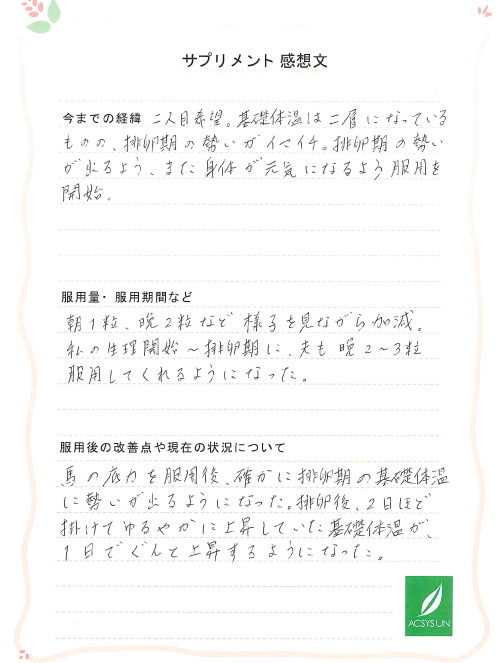 サプリメント 感想文
今までの経緯 二人目希望。基礎体温は二層になっている
ものの、排卵期の勢いがイマイチ。排卵期の勢い
が出るよう、また身体が元気になるよう服用を
開始。
服用量・服用期間など
朝1粒、晩2粒など様子を見ながら加減。
私の生理開始〜排卵期に、夫も晩2〜3粒
服用してくれるようになった。
服用後の改善点や現在の状況について
馬の底力を服用後、確かに排卵期の基礎体温
に勢いが出るようになった。排卵後、2日ほど
掛けてゆるやかに上昇していた基礎体温が、
1日でぐんと上昇するようになった。
ACSYSUN